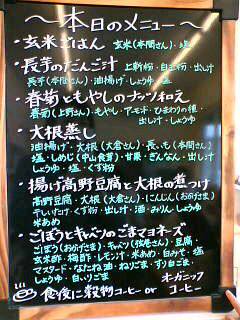 ～本日のメニュー～
・玄米ごはん 玄米(本間さん)・塩
・長芋のだんご汁 上新粉・白玉粉・出し汁
長芋(本間さん)・油揚げ・しょうゆ・塩
・春菊ともやしのナッツ和え
春菊(上野さん)・もやし・アーモンド・ひまわりの種・
出し汁・しょうゆ
・大根蒸し
油揚げ・大根(大倉さん)・長いも(本間さん)
塩・しめじ(中山食茸)・甘栗・ぎんなん・出し汁
しょうゆ・塩・くず粉
・揚げ高野豆腐と大根の煮つけ
高野豆腐・大根(大倉さん)・にんじん(おかげさま)
干しいたけ・くず粉・出し汁・酒・みりん・しょうゆ
米あめ
・ごぼうとキャベツのごまマヨネーズ
ごぼう(おかげさま)・キャベツ・豆腐・
玄米酢・梅酢・レンチ・米あめ・白みそ・塩
マスタード・なたね油・ねりごま・すり白ごま・
しょうゆ・白いりごま
食後に穀物コーヒー or オーガニックコーヒー